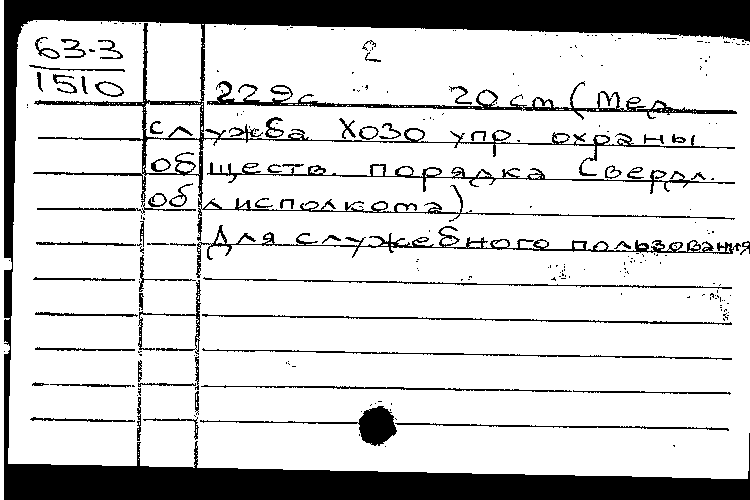 63-3
1510
2
229с 20 cm (Мед
служба ХОЗО упр. охраны
обществ. порядка Свердл.
облисполкома)
Для служебного пользования